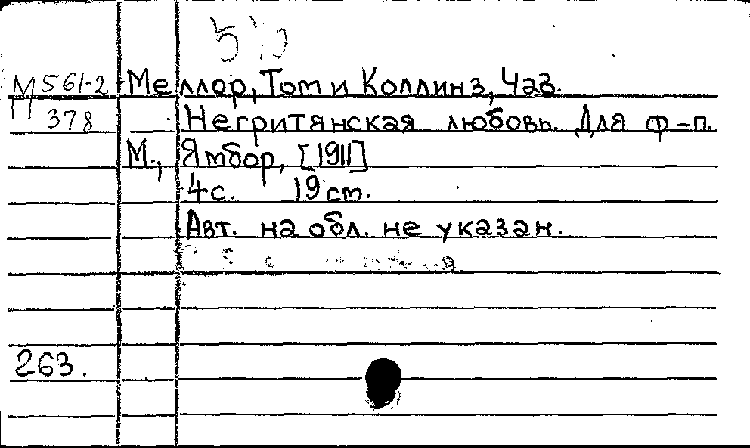 М 561-2 Меллор, Том и Коллинз, Чаз.
378 Негритянская любовь. Для ф-п.
М., Ямбор, [1911]
4 с. 19 ст.
Авт. на обл. не указан.
263.